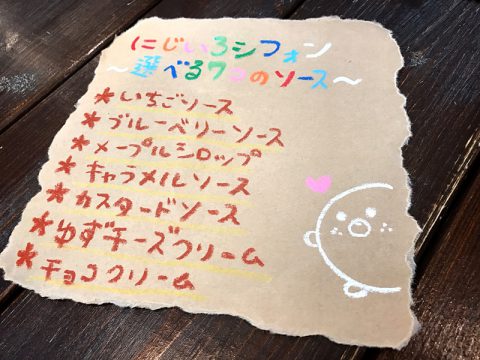 にじいろシフォン
～選べる7つのソース～
*いちごソース
*ブルーベリーソース
*メープルシロップ
*キャラメルソース
*カスタードソース
*ゆずチーズクリーム
*チョコクリーム